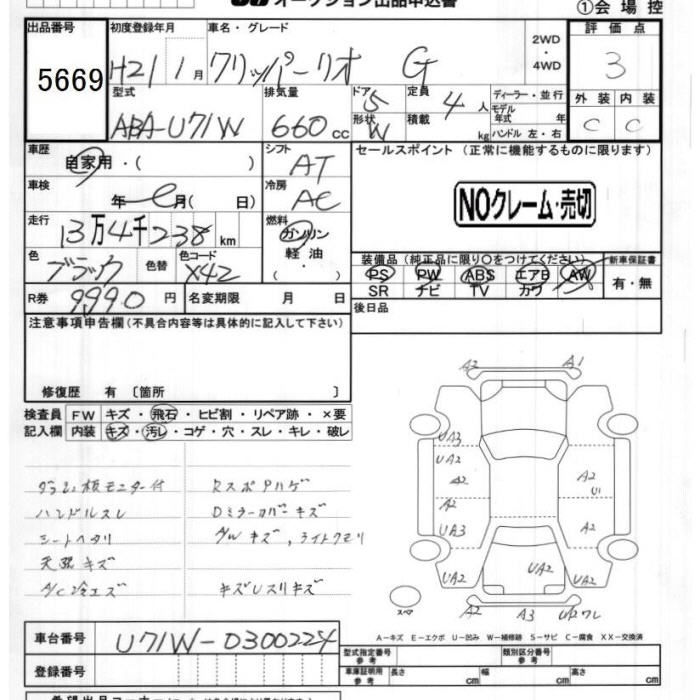 オークション出品申込書
①会場控
出品番号 初度登録年月 車名・グレード 評価点
5669 H21 1月 クリッパーリオ G 2WD・4WD 3
型式 排気量 ドア 5 定員 4人 ディーラー・並行 外装 内装
ABA-U71W 660cc 形状 W 積載 kg モデル年式 年 C C
ハンドル 左・右
車歴 自家用・( ) シフト AT セールスポイント (正常に機能するものに限ります)
車検 年 月( 日) 冷房 AC
NOクレーム・売切
走行 13万4千238km 燃料 ガソリン 軽油・( )
色 ブラック 色替 色コード X42
装備品 (純正品に限り○をつけてください) 新車保証書
PS PW ABS エアB AW 有・無
SR ナビ TV カワ
R券 9990円 名変期限 月 日
後日品
注意事項申告欄(不具合内容等は具体的に記入して下さい)
修復歴 有 〔箇所 〕
検査員記入欄 FW キズ・飛石・ヒビ割・リペア跡・×要
内装 キズ・汚レ・コゲ・穴・スレ・キレ・破レ
ダッシュ板モニター付 Rスポアハゲ
ハンドルスレ Dミラーカバーキズ
シートヘタリ A/Wキズ、ライトクモリ
天張キズ
A/C冷エズ キズUスリキズ
A2 A1
UA3
UA2
A2 A2
U1
A2
UA3 A2
UA2 UA2 UA2
スペア A2 A3 UA2ワレ
A-キズ E-エクボ U-凹み W-補修跡 S-サビ C-腐食 XX-交換済
車台番号 U71W-0300224
登録番号
型式指定番号 参考 類別区分番号 参考
車庫証明用 参考 長さ cm 幅 cm 高さ cm
希望出品コーナー